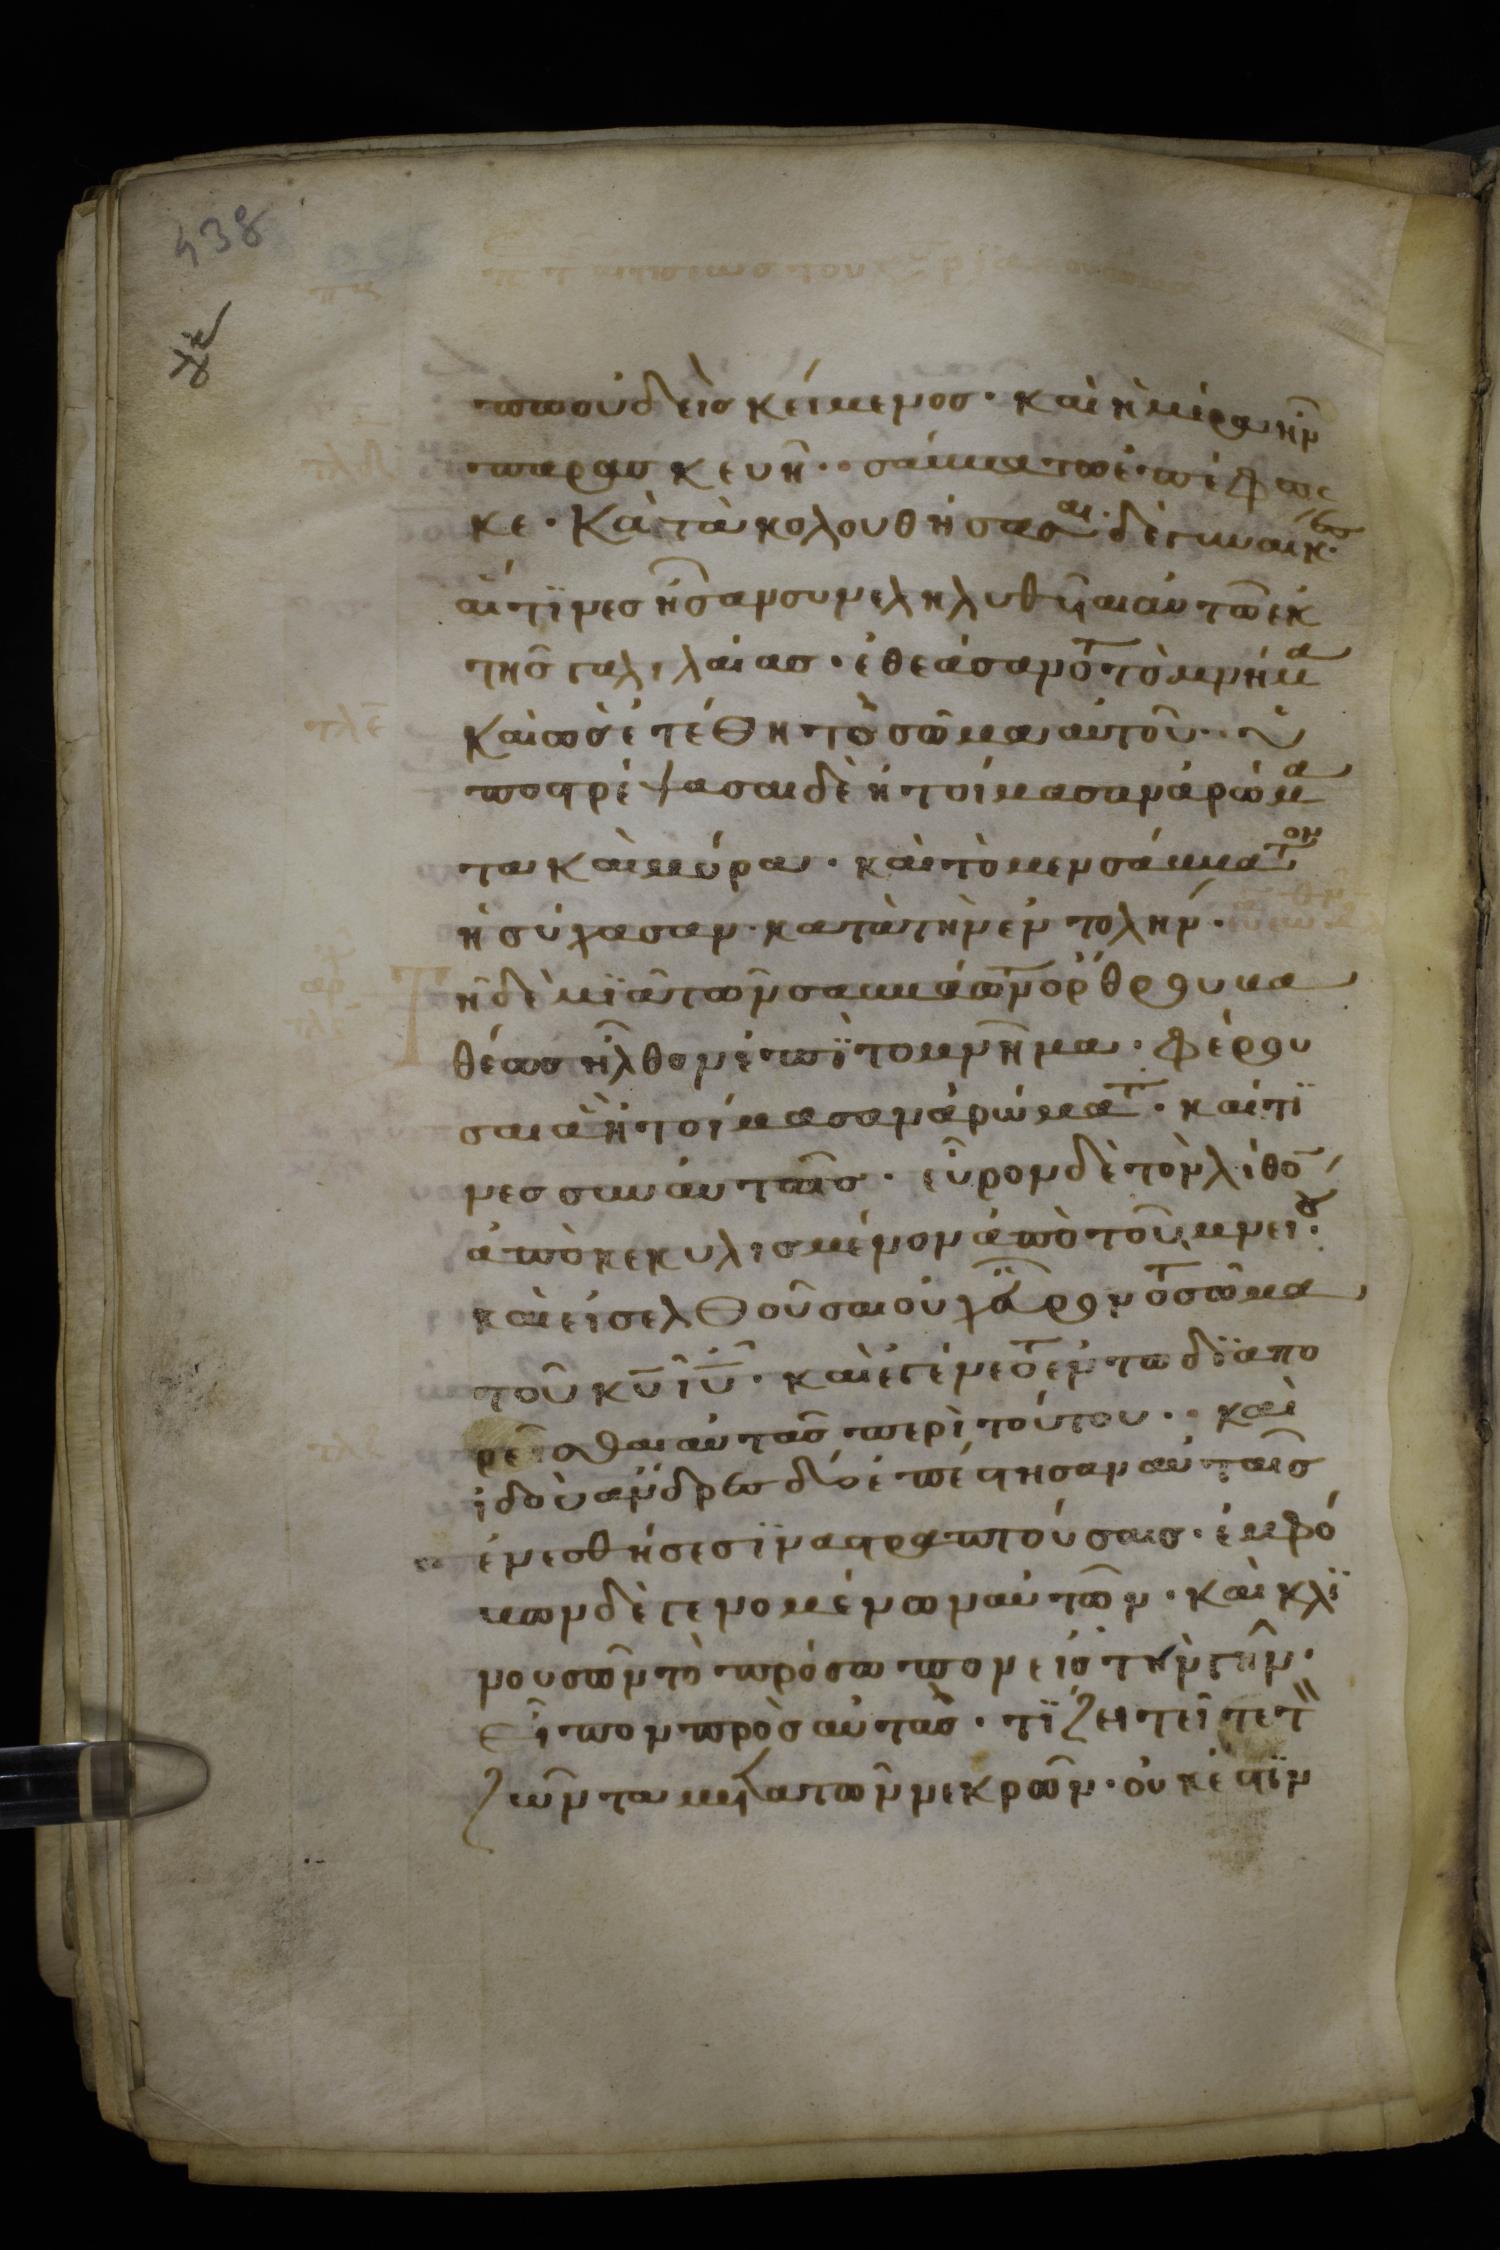 438
πω οὐδεὶς κείμενος· καὶ ἡμέρα ἦν
παρασκευή· σάββατω ἐπέφωσ
κε· Κατακολουθήσασαι δὲ γυναῖκες·
αἵτϊνες ἦσαν συνεληλυθῆαι αὐτῶ ἐκ
τῆς γαλιλαίας· ἐθεάσαντο τὸ μνῆμα
καὶ ὡς ἐτέθη τὸ σῶμα αὐτοῦ· ὑ
ποστρέψασαι δὲ ἡτοίμασαν ἀρώμα
τα καὶ μύρα· καὶ τὸ μεν σάββατον
ἡσύχασαν· κατὰ τὴν ἐντολήν·
ῆ δὲ μϊᾶ τῶν σαββάτων ὄρθρου βα
θέως ἦλθον ἐπῒ το μνῆμα· φέρου
σαι ἃ ἡτοίμασαν ἀρώματα· καί τϊ
νες σὺν αὐταῖς· εὗρον δὲ τὸν λίθον
ἀποκεκυλισμένον ἀπὸ τοῦ μνειου·
καὶ εἰσελθοῦσαι οὐχ εὗρον το σῶμα
τοῦ κυ ιυ· καὶ ἐγένετο ἐν τω δϊαπο
ρεῖσθαι αὐτὰς περὶ τούτου· καὶ
ἰδοὺ ἄνδρες δύο ἐπέστησαν αὐταῖς
ἐν ἐσθήσεσϊν αστραπτούσαις· ἐμφό
βων δὲ γενομένων αὐτῶν· καὶ κλϊ
νουσῶν τὸ πρόσωπον εἰς τὴν γῆν·
εἶπον πρὸς αὐτάς· τϊ ζητεῖτε τ
ζῶντα μετα τῶν νεκρῶν· οὐκ ἔστϊν